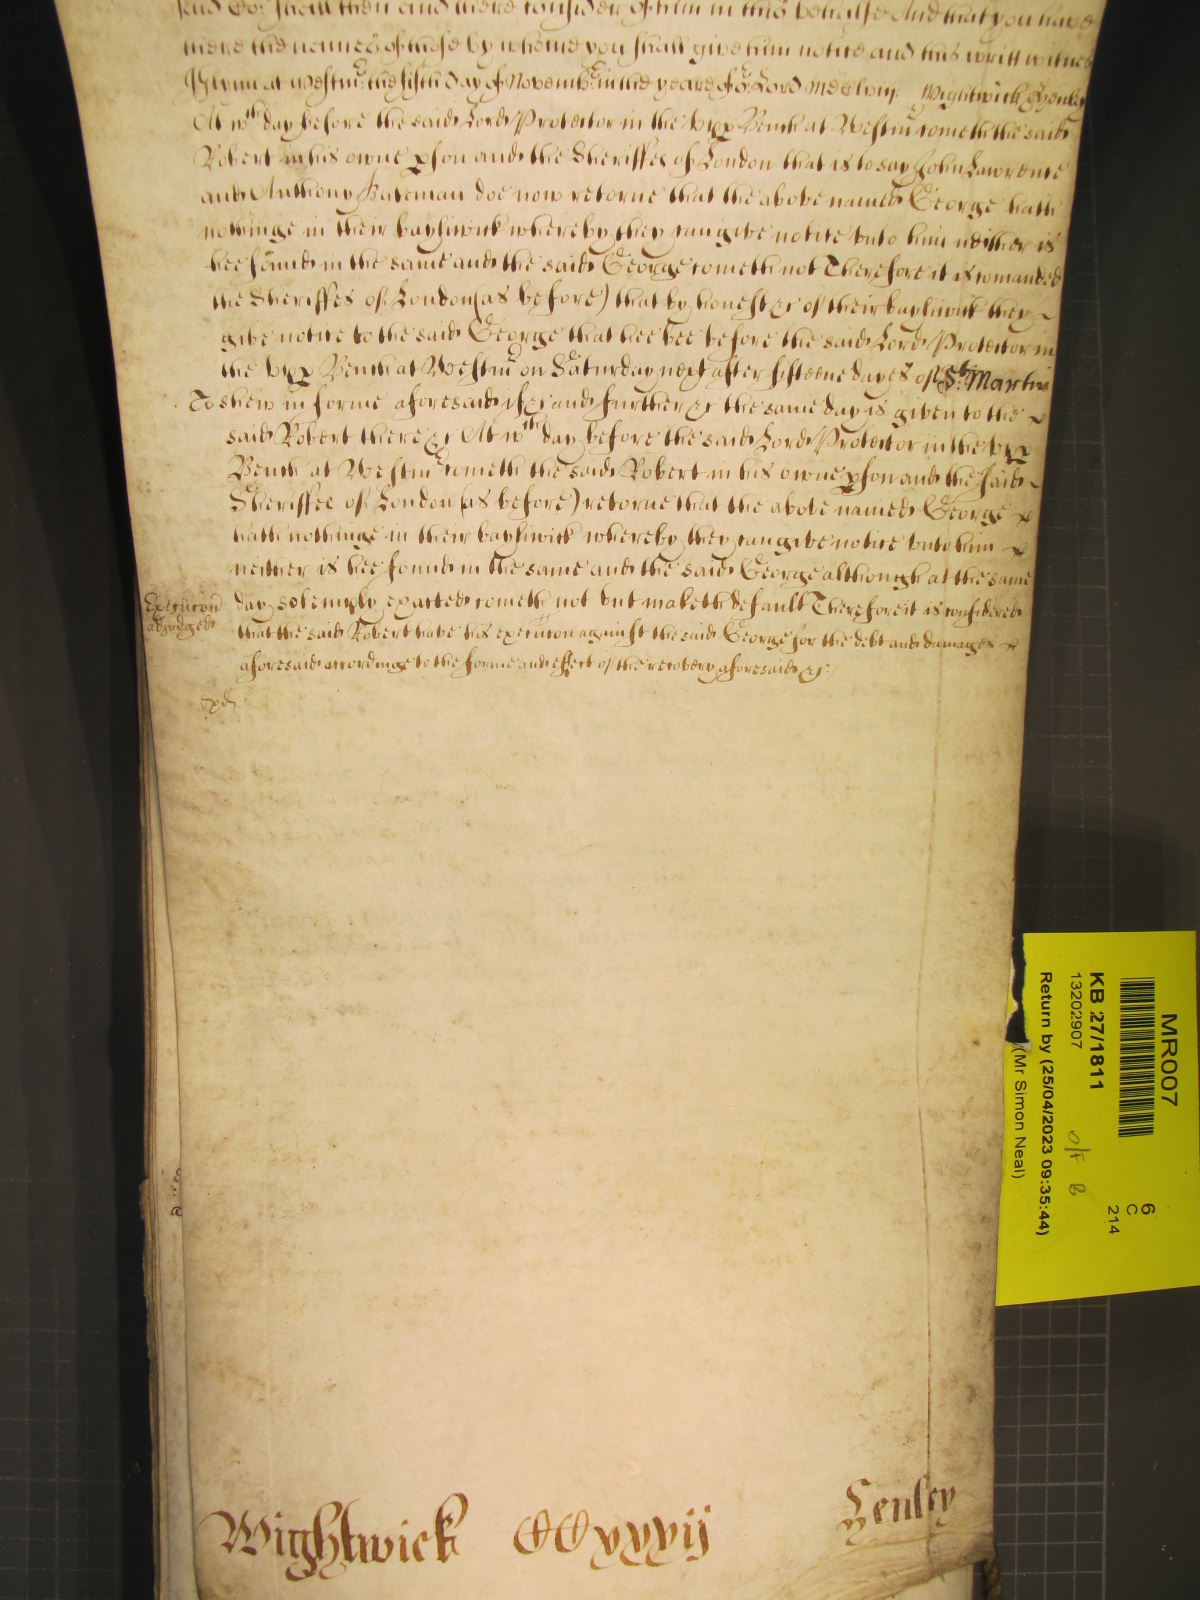 said Co: shall then and there consider of him in this behalfe And that you have
there the names of those by whome you shall give him notice and this writt witnes
Glynn at Westmr: the fifth day of Novembr: in the yeare of or: Lord Mdclviij. Wightwick Henley
At wth day before the said Lord Protector in the vpp Bench at Westmr cometh the said
Robert in his owne pson and the Sheriffes of London that is to say John Lawrence
and Anthony Bateman doe now retorne that the above named George hath
nothinge in their bayliwick whereby they can give notice vnto him neither is
hee found in the same and the said George cometh not Therefore it is comanded
the Sheriffes of London (as before) that by honest &c of their bayliwick they
give notice to the said George that hee bee before the said Lord Protector in
the vpp Bench at Westmr on Saturday next after fifteene dayes of St. Martin
To shew in forme aforesaid if &c and further &c the same day is given to the
said Robert there &c At wth day before the said Lord Protector in the vpp
Bench at Westmr cometh the said Robert in his owne pson and the said
Sheriffes of London (as before) retorne that the above named George
hath nothinge in their bayliwick whereby they can give notice vnto him
neither is hee found in the same and the said George although at the same
Execucon
adjudged
day solemply exacted cometh not but maketh default Therefore it is considered
that the said Robert have his execucon against the said George for the debt and damages
aforesaid accordinge to the forme and effect of the recovery aforesaid &c:
Wightwick CCxxxvij Henley
MR007
KB 27/1811
13202907
Return by (25/04/2023 09:35:44)
(Mr Simon Neal)
O/F B
6
C
214